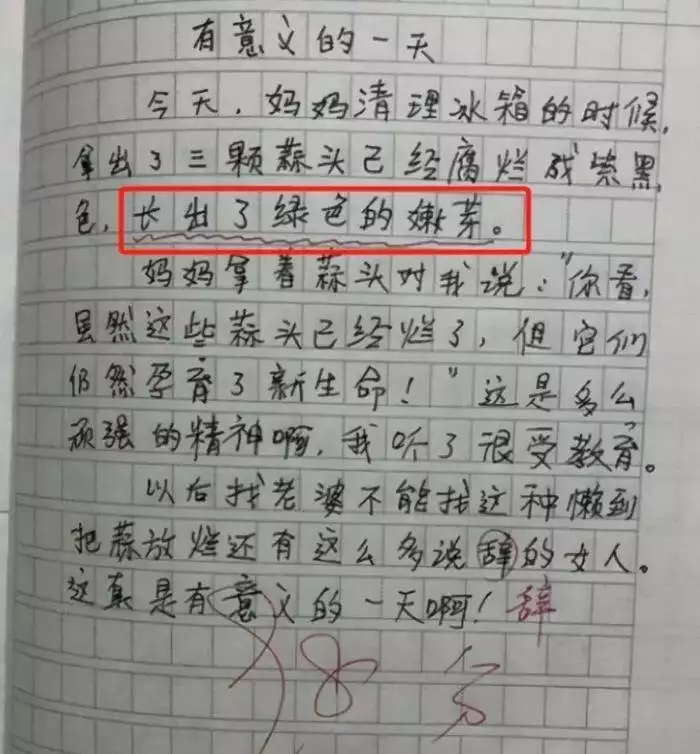 有意义的一天
今天，妈妈清理冰箱的时候，
拿出了三颗蒜头已经腐烂成紫黑
色，长出了绿色的嫩芽。
妈妈拿着蒜头对我说："你看，
虽然这些蒜头已经烂了，但它们
仍然孕育了新生命！"这是多么
顽强的精神啊，我听了很受教育。
以后找老婆不能找这种懒到
把蒜放烂还有这么多说辞的女人。
这真是有意义的一天啊！辞
98分